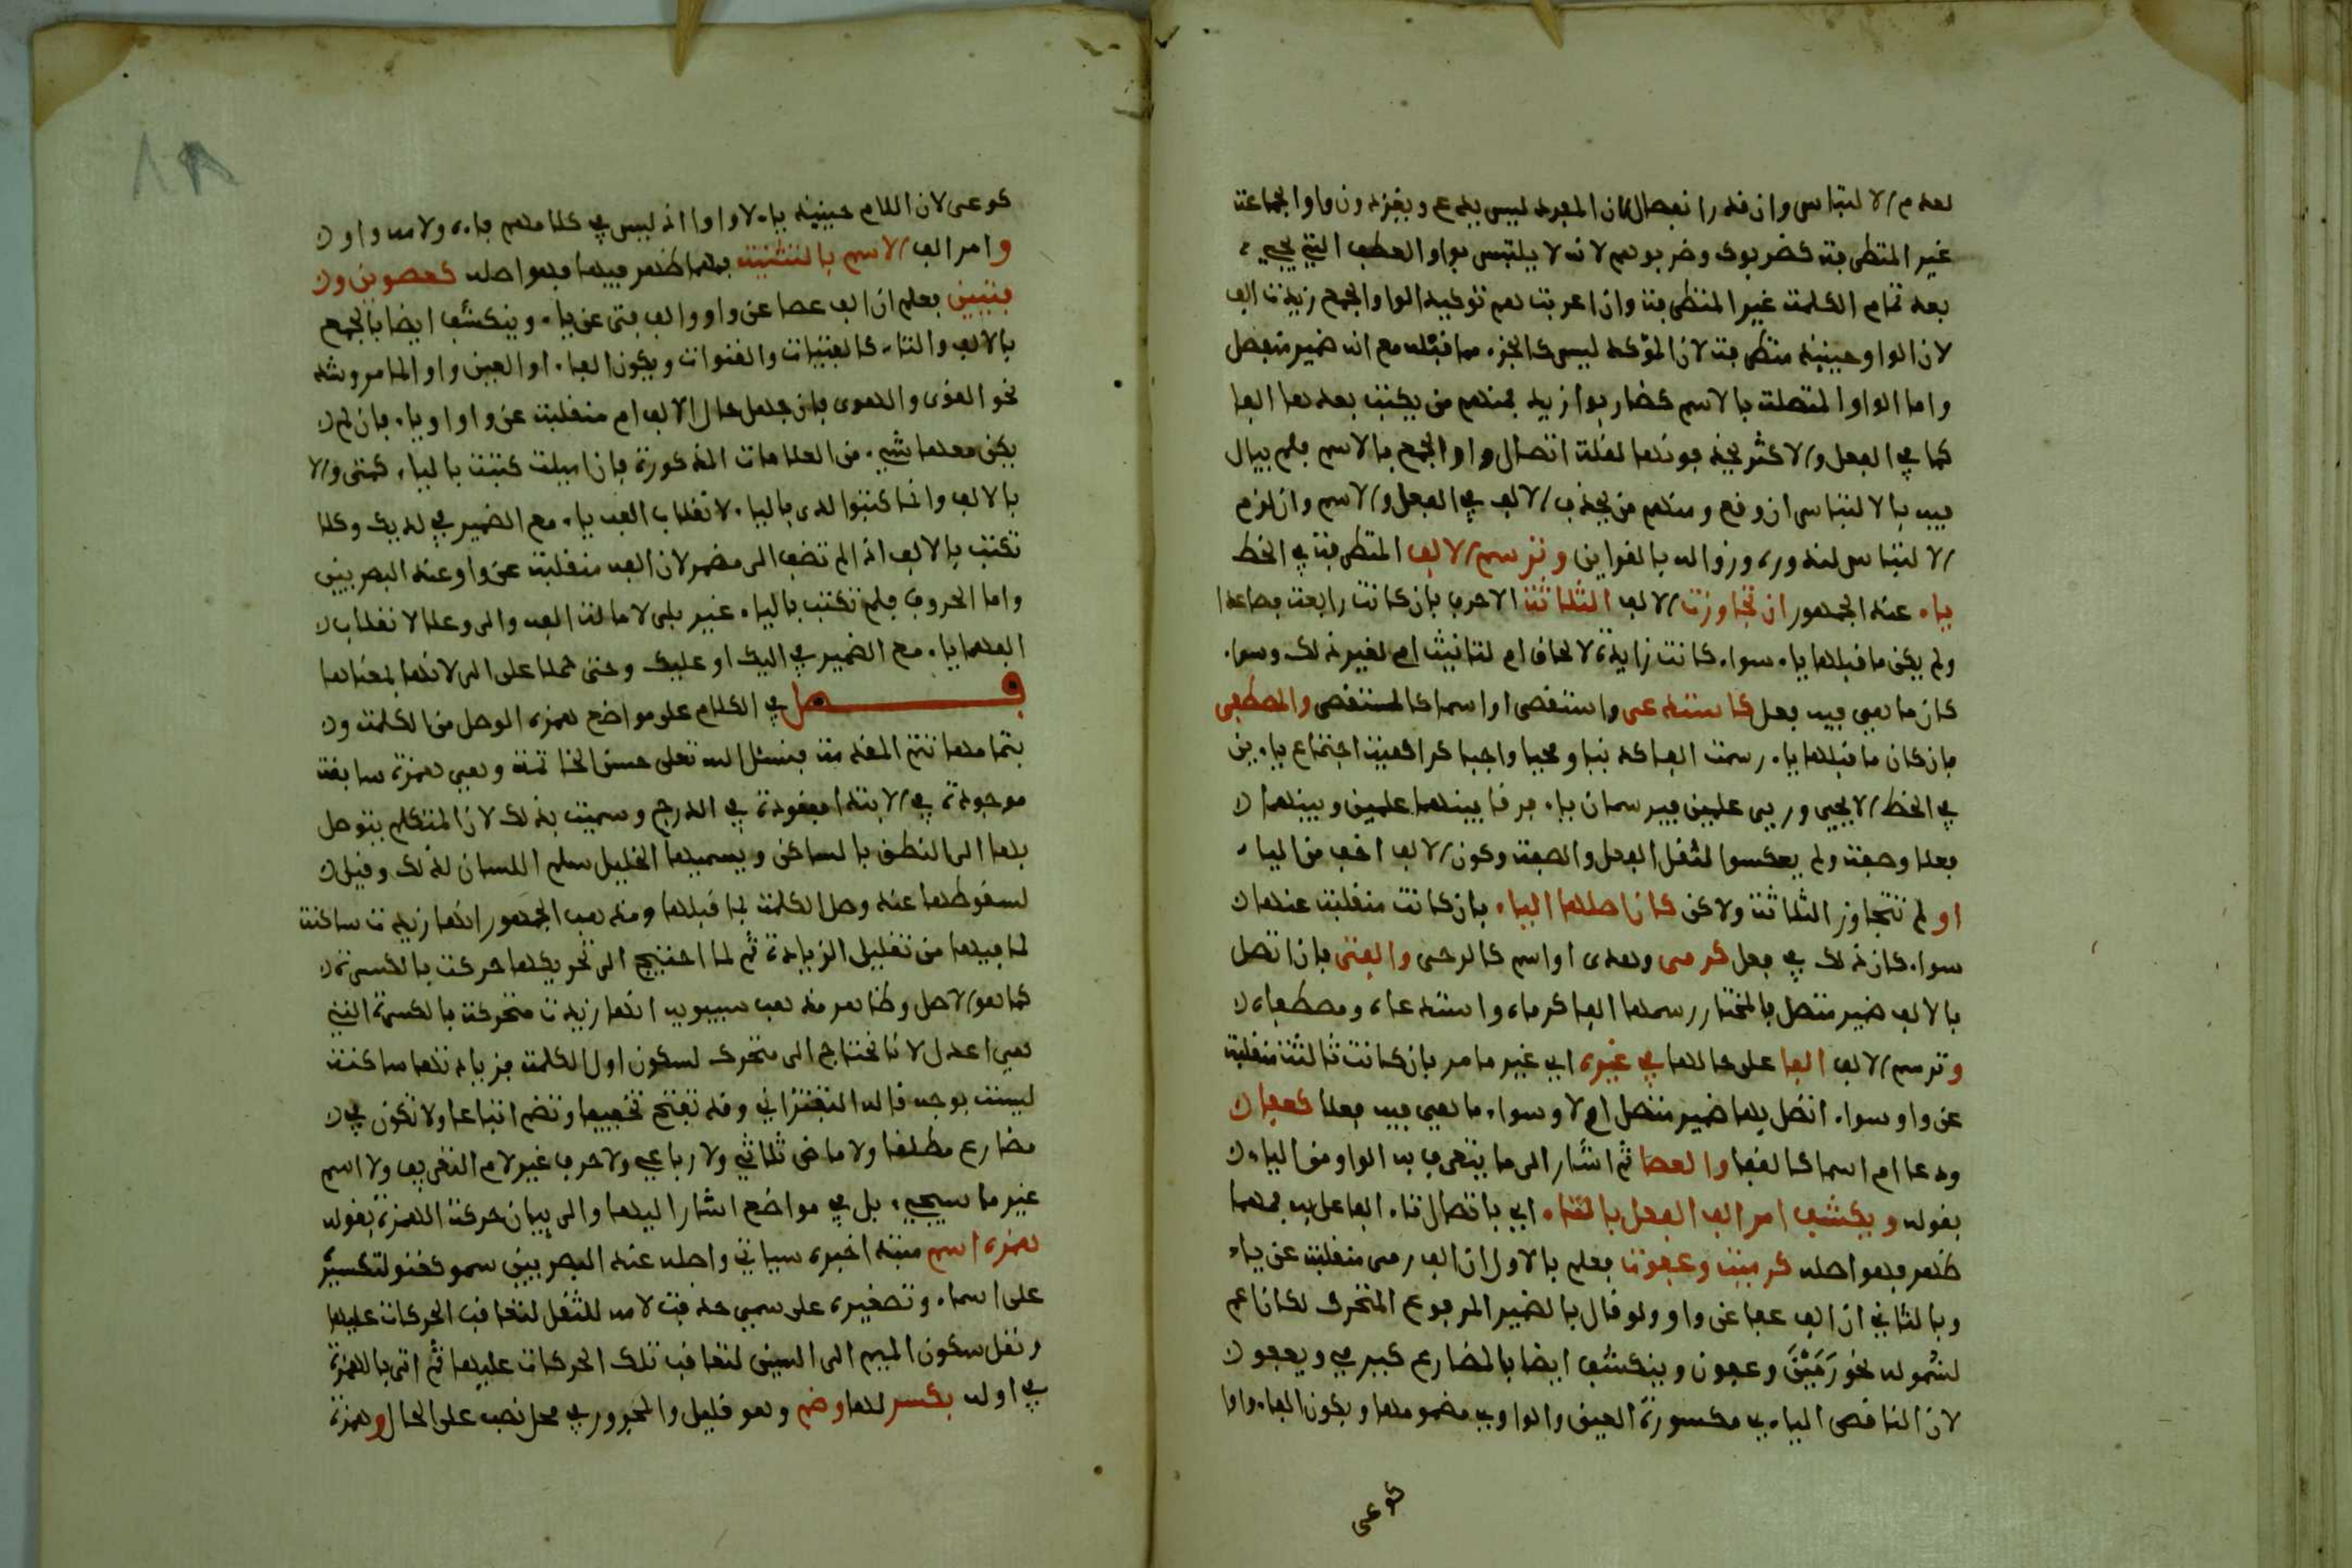 لعدم الالتباس وان قدر انفصال لان المفرد ليس يدعو ويغزو دون واو الجماعة
غير المتطرفة كضربوك وضربوهم لانه لا يلتبس بواو العطف التي تجيء
بعد تمام الكلمة غير المتطرفة وان اعربت هم توكيد الواو الجمع زيدت الف
لان الواو حينئذ متطرفة لان المؤكد ليس كالجزء مما قبله مع انه ضمير منفصل
واما الواو المتصلة بالاسم كضاربوا زيد فمنهم من يكتب بعدها الفا
كما في الفعل والاكثر يحذفونها لقلة اتصال واو الجمع بالاسم فلم يبال
فيه بالالتباس ان وقع ومنهم من يحذف الالف في الفعل والاسم وان لزم
الالتباس لندوره وزواله بالقراين وترسم الالف المتطرفة في الخط
ياء عند الجمهور ان تجاوزت الالف الثلاثة الاحرف بان كانت رابعة فصاعدا
ولم يكن ما قبلها ياء سواء كانت زايدة لالحاق ام لتانيث ام لغير ذلك وسواء
كان ما هي فيه فعل كاستدعى واستقصى او اسما كالمستقصى والمصطفى
فان كان ما قبلها ياء رسمت الفا كدنيا ومحيا واحيا كراهية اجتماع ياءين
في الخط الا يحيى وريى علمين فيرسمان ياء فرقا بينهما علمين وبينهما
فعلا وصفة ولم يعكسوا لثقل الفعل والصفة وكون الالف اخف من الياء
او لم تتجاوز الثلاثة ولاكن كان اصلها الياء بان كانت منقلبة عنها
سواء كان ذلك في فعل كرمى وهدى او اسم كالرحى والفتى فان اتصل
بالالف ضمير متصل فالمختار رسمها الفا كرماه واستدعاه ومصطفاه
وترسم الالف الفا على حالها في غيره اي غير ما مر بان كانت ثالثة منقلبة
عن واو سواء اتصل بها ضمير متصل ام لا وسواء ما هي فيه فعلا كعفا
ودعا ام اسما كالقفا والعصا ثم اشار الى ما يتعرف به الواو من الياء
بقوله ويكشف امر الف الفعل بالتاء اي باتصال تاء الفاعل به فمهما
ظهر فهو اصله كرميت وعفوت فعلم بالاول ان الف رمى منقلبة عن ياء
وبالثاني ان الف عفا عن واو ولو قال بالضمير المرفوع المتحرك لكان اعم
لشموله نحو رَمَيْنَ وعفون وينكشف ايضا بالمضارع كيرمي ويعفو
لان الناقص الياءي مكسورة العين والواوي مضمومها ويكون الفاء واوا
كوعى
كوعى لان اللام حينئذ ياء لا واوا اذ ليس في كلامهم فاءه ولامه واو
وامر الف الاسم بالتثنية فمهما ظهر فيها فهو اصله كعصوين و
فتيين فعلم ان الف عصا عن واو والف فتى عن ياء وينكشف ايضا بالجمع
بالالف والتاء كالفتيات والقنوات ويكون الفاء او العين واو المامر وشذ
نحو القوى والهوى فان جهل حال الالف ام منقلبة عن واو او ياء فان لم
يكن معها شيء من العلامات المذكورة فان اميلت كتبت بالياء كمتى والا
بالالف وانما كتبوا لدى بالياء لانقلاب الفه ياء مع الضمير في لديك وكلا
تكتب بالالف اذا لم تضف الى مضمر لان الفه منقلبة عن واو عند البصريين
واما الحروف فلم تكتب بالياء غير بلى لامالة الفه والى وعلى لانقلاب
الفهما ياء مع الضمير في اليك او عليك وحتى حملا على الى لانها بمعناها
فصل في الكلام على مواضع همزة الوصل من الكلمة و
بتمامها تتم المقدمة فنسئل الله تعلى حسن الخاتمة وهي همزة سابقة
موجودة في الابتدا مفقودة في الدرج وسميت بذلك لان المتكلم يتوصل
بها الى النطق بالساكن ويسميها الخليل سلم اللسان لذلك وقيل
لسقوطها عند وصل الكلمة بما قبلها ومذهب الجمهور انها زيدت ساكنة
لما فيها من تقليل الزيادة ثم لما احتيج الى تحريكها حركت بالكسرة
كما هو الاصل وظاهر مذهب سيبويه انها زيدت متحركة بالكسرة التي
هي اعدل لانا نحتاج الى متحرك لسكون اول الكلمة فزيادتها ساكنة
ليست بوجه قاله التفتزاني وقد تفتح تخفيفا وتضم اتباعا ولا تكون في
مضارع مطلقا ولا ماضي ثلاثي ولا رباعي ولا حرف غير لام التعريف ولا اسم
غير ما سيجيء بل في مواضع اشار اليها والى بيان حركة الهمزة بقوله
همزة اسم مبتدا خبره سياتي واصله عند البصريين سمو كقنو لتكسيره
على اسماء وتصغيره على سمي حذفت لامه للثقل لتعاقب الحركات عليها
ونقل سكون الميم الى السين لتعاقب تلك الحركات عليها ثم اتى بالهمزة
في اوله بكسر لها وضم وهو قليل والمجرور في محل نصب على الحال وهمزة